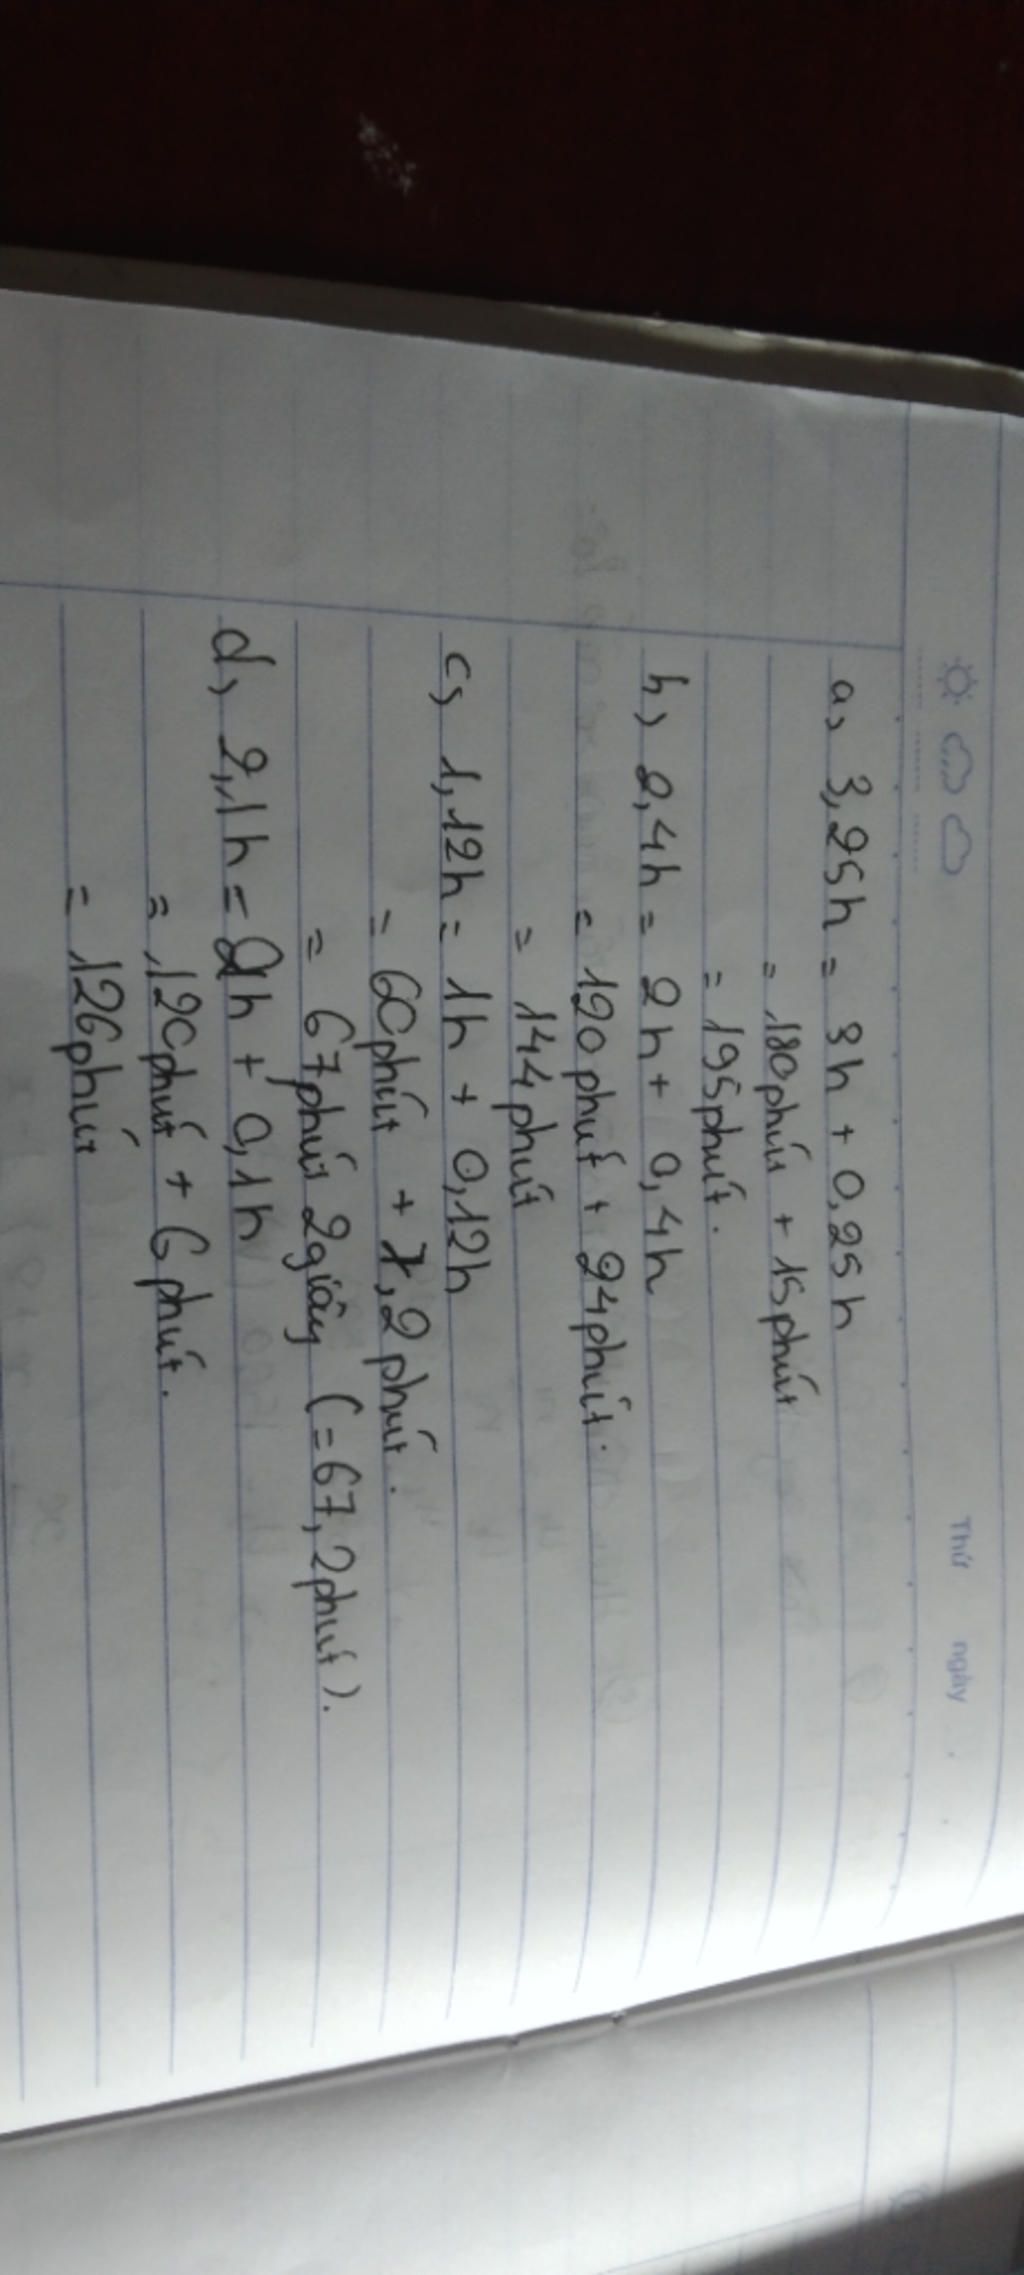 Thứ ngày
a, 3,25h = 3h + 0,25h
= 180phút + 15phút
= 195phút.
b, 2,4h = 2h + 0,4h
= 120phút + 24phút.
= 144phút
c, 1,12h = 1h + 0,12h
= 60phút + 7,2phút.
= 67phút 2giây (=67,2phút).
d, 2,1h = 2h + 0,1h
= 120phút + 6phút.
= 126phút